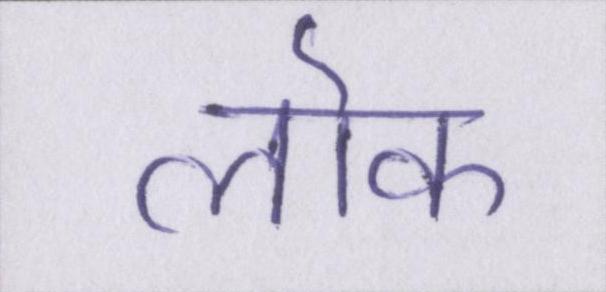 लोक